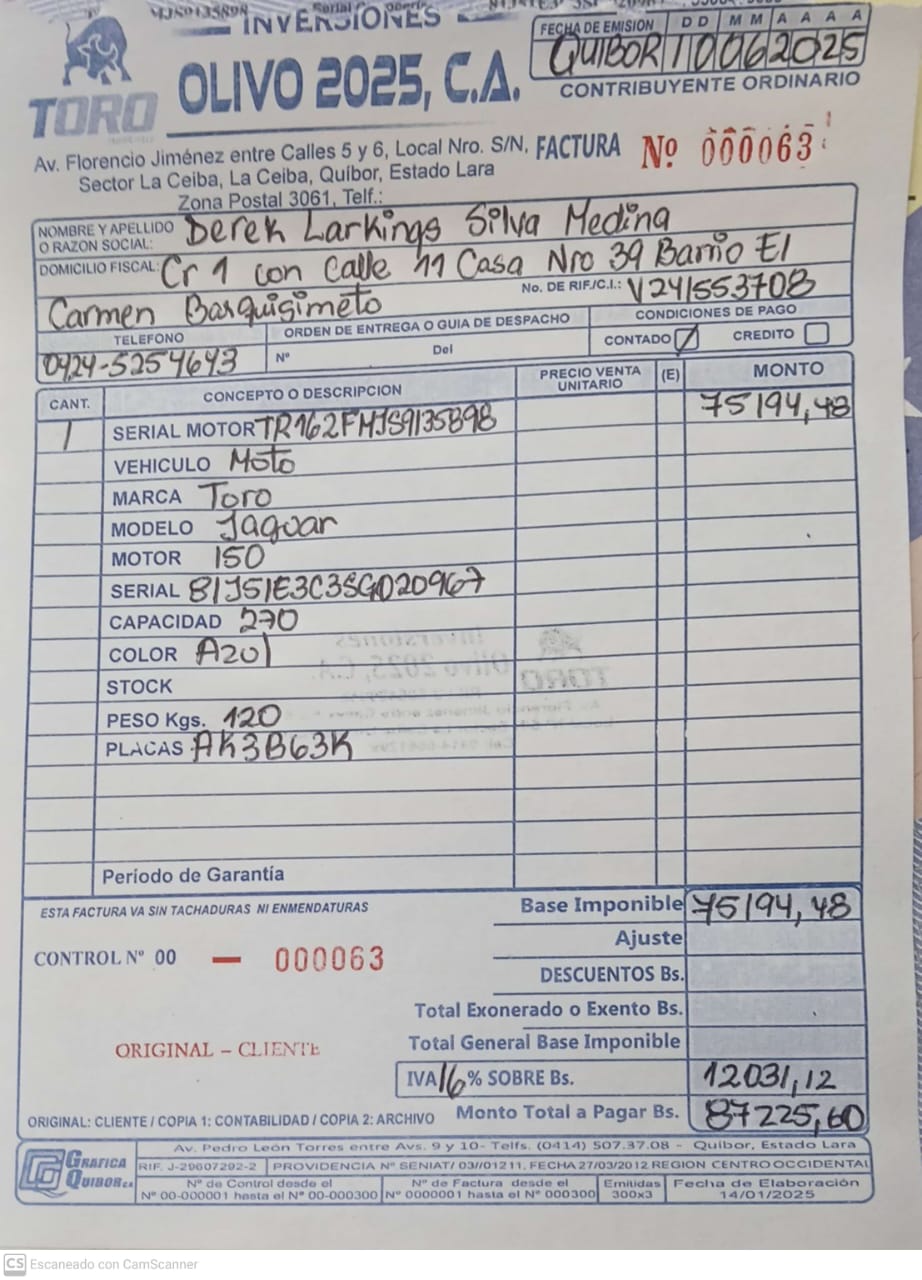 INVERSIONES
OLIVO 2025, C.A.
TORO
FECHA DE EMISION DD MM AAAA
QUIBOR 10 06 2025
CONTRIBUYENTE ORDINARIO
Av. Florencio Jiménez entre Calles 5 y 6, Local Nro. S/N,
Sector La Ceiba, La Ceiba, Quíbor, Estado Lara
Zona Postal 3061, Telf.:
FACTURA Nº 000063
NOMBRE Y APELLIDO O RAZON SOCIAL: Derek Larkings Silva Medina
DOMICILIO FISCAL: Cr 1 con Calle 11 Casa Nro 39 Barrio El
Carmen Barquisimeto No. DE RIF./C.I.: V241553708
TELEFONO ORDEN DE ENTREGA O GUIA DE DESPACHO CONDICIONES DE PAGO
0424-5254643 Nº Del CONTADO CREDITO
CANT. CONCEPTO O DESCRIPCION PRECIO VENTA UNITARIO (E) MONTO
1 SERIAL MOTOR TR162FMJS9135898 75194,48
VEHICULO Moto
MARCA Toro
MODELO Jaguar
MOTOR 150
SERIAL 81JS1E3C3SG020967
CAPACIDAD 270
COLOR Azul
STOCK
PESO Kgs. 120
PLACAS AK3B63K
Período de Garantía
ESTA FACTURA VA SIN TACHADURAS NI ENMENDATURAS
Base Imponible 75194,48
Ajuste
CONTROL Nº 00 — 000063
DESCUENTOS Bs.
Total Exonerado o Exento Bs.
Total General Base Imponible
ORIGINAL – CLIENTE
IVA 16 % SOBRE Bs. 12031,12
ORIGINAL: CLIENTE / COPIA 1: CONTABILIDAD / COPIA 2: ARCHIVO Monto Total a Pagar Bs. 87225,60
GRAFICA QUIBOR C.A.
Av. Pedro León Torres entre Avs. 9 y 10- Telfs. (0414) 507.37.08 - Quíbor, Estado Lara
RIF. J-29607292-2 PROVIDENCIA Nº SENIAT/ 03//01211, FECHA 27/03/2012 REGION CENTRO OCCIDENTAL
Nº de Control desde el Nº 00-000001 hasta el Nº 00-000300 Nº de Factura desde el Nº 0000001 hasta el Nº 000300 Emitidas 300x3 Fecha de Elaboración 14/01/2025
CS Escaneado con CamScanner